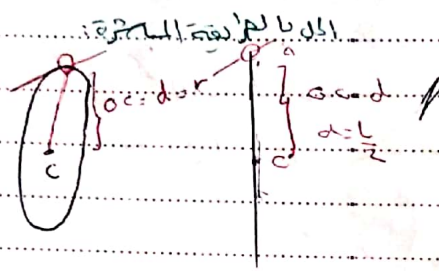 الحل بالطريقة المباشرة:
oc = d = r
c
a
oc = d
d = L/2
c